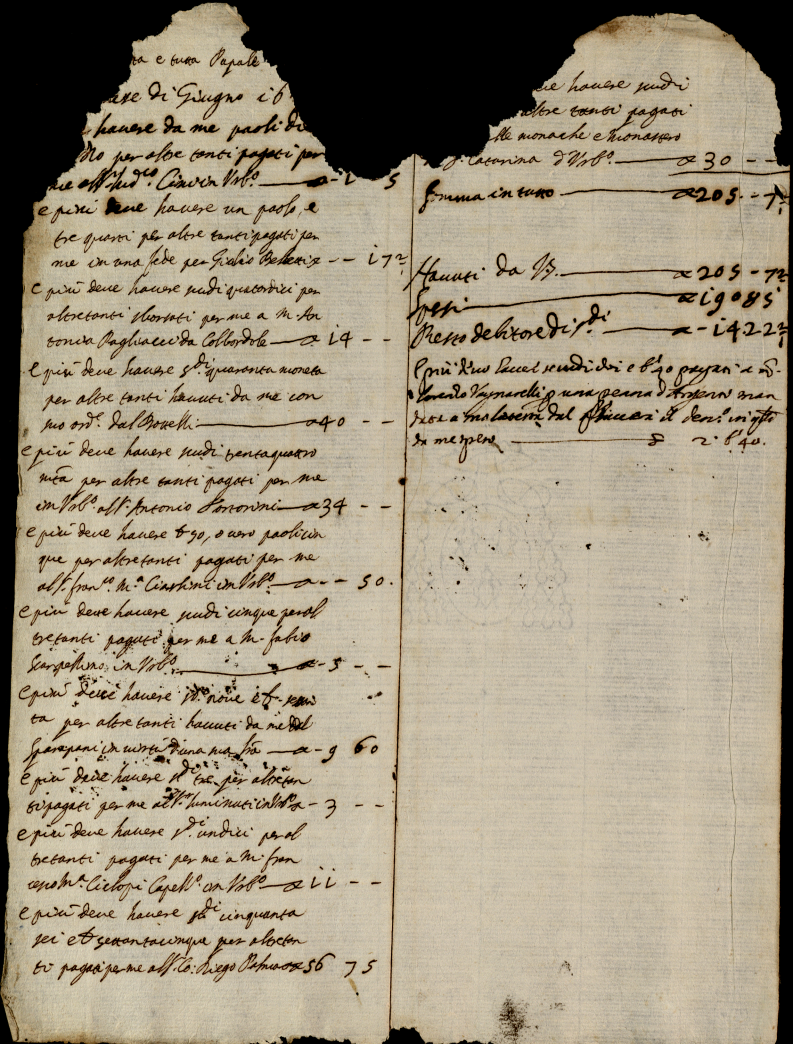 e tutta Papale
di Giugno i6
havere da me paoli di
per altre tanti pagati per
in Vrb.º — i 5
e più deve havere un paolo, e
tre quarti per altre tanti pagati per
me in una fede per Giulio — - - i7½
e più deve havere scudi quatordici per
altretanti sborsati per me a M. An
tonio Pagliacci da Colbordolo — 14 - -
e più deve havere s.di quaranta moneta
per altre tanti havuti da me con
suo ord.e dal Bonelli — 40 - -
e più deve havere scudi trentaquatro
m.ta per altre tanti pagati per me
in Vrb.º all S.r Antonio — 34 - -
e più deve havere b 50, o vero paoli cin
que per altre tanti pagati per me
all S.r fran.co M.a in Vrb.º — - - 50.
e più deve havere scudi cinque per al
tretanti pagati per me a M. fabio
Scarpellino in Vrb.º — 5 - -
e più deve havere s.di nove e b. sessan
ta per altre tanti havuti da me dal
Sparapani in virtù d'una sua — 9 60
e più deve havere s.di tre per altretan
ti pagati per me all S.r in Vrb.º — 3 - -
e più deve havere s.di undici per al
tretanti pagati per me a M. fran
cesco M.a Ciclopi Capell.º in Vrb.º — ii - -
e più deve havere s.di cinquanta
sei e b settantacinque per altretan
ti pagati per me all S.r Co: Diego — 56 75
havere scudi
altre tanti pagati
alle monache e monastero
S. Catarina d'Vrb.º — 30 - -
Somma in tutto — 205 - 7½
Havuti da — 205 - 7½
Spesi — i90 85
Resto debitore di s.di — i4 22½
E più devo haver scudi doi e b. 40 pagati a
una penna d'Argento man
data a dal
da me speso — 2. b. 40.